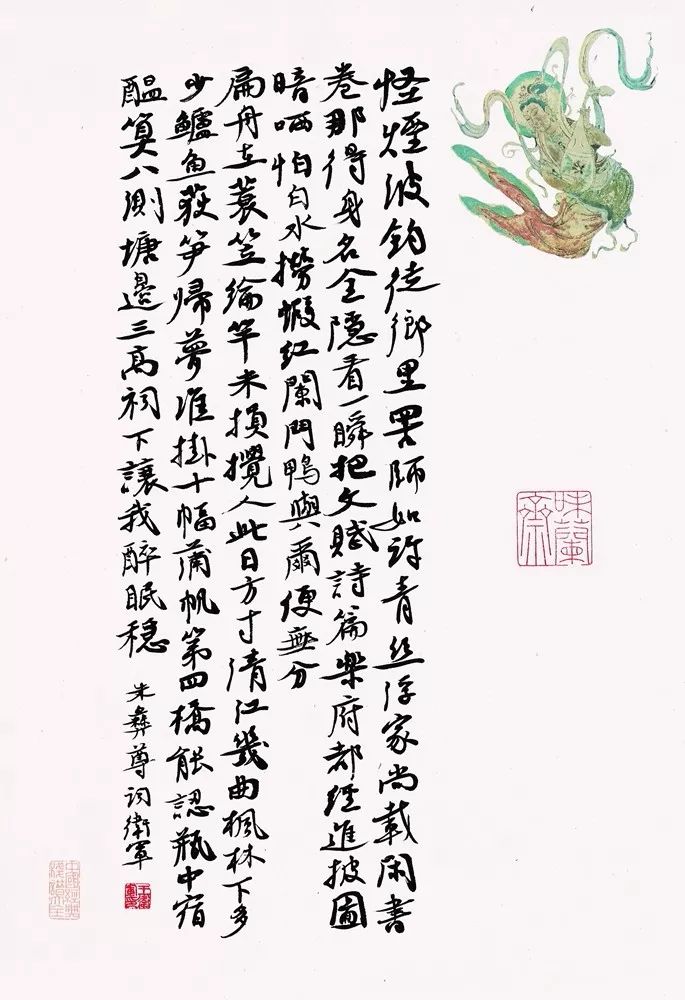 怪煙波釣徒鄉里罟師如許青丝浮家尚載閑書
卷那得身名全隱看一瞬把文賦詩篇樂府都經進披圖
暗哂怕白水撈蝦紅闌門鴨與爾便無分
扁舟在蓑笠綸竿未損攪人此日方寸清江幾曲楓林下多
少鱸魚荻笋歸夢准掛十幅蒲帆第四橋能認瓶中宿
醖算八測塘邊三高祠下讓我醉眠穩
朱彝尊詞衛軍
味蘭齋